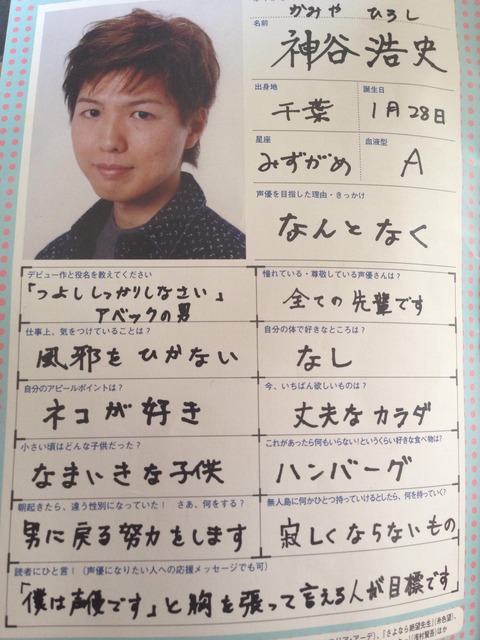 かみや ひろし
名前
神谷浩史
出身地
千葉
誕生日
1月28日
星座
みずがめ
血液型
A
声優を目指した理由・きっかけ
なんとなく
デビュー作と役名を教えてください
「つよししっかりしなさい」
アベックの男
憧れている・尊敬している声優さんは?
全ての先輩です
仕事上、気をつけていることは?
風邪をひかない
自分の体で好きなところは?
なし
自分のアピールポイントは?
ネコが好き
今、いちばん欲しいものは?
丈夫なカラダ
小さい頃はどんな子供だった?
なまいきな子供
これがあったら何もいらない!というくらい好きな食べ物は?
ハンバーグ
朝起きたら、違う性別になっていた! さあ、何をする?
男に戻る努力をします
無人島に何かひとつ持っていけるとしたら、何を持っていく?
寂しくならないもの
読者にひと言!(声優になりたい人への応援メッセージでも可)
「僕は声優です」と胸を張って言える人が目標です
リア・アーデ)、『さよなら絶望先生』(糸色望)、